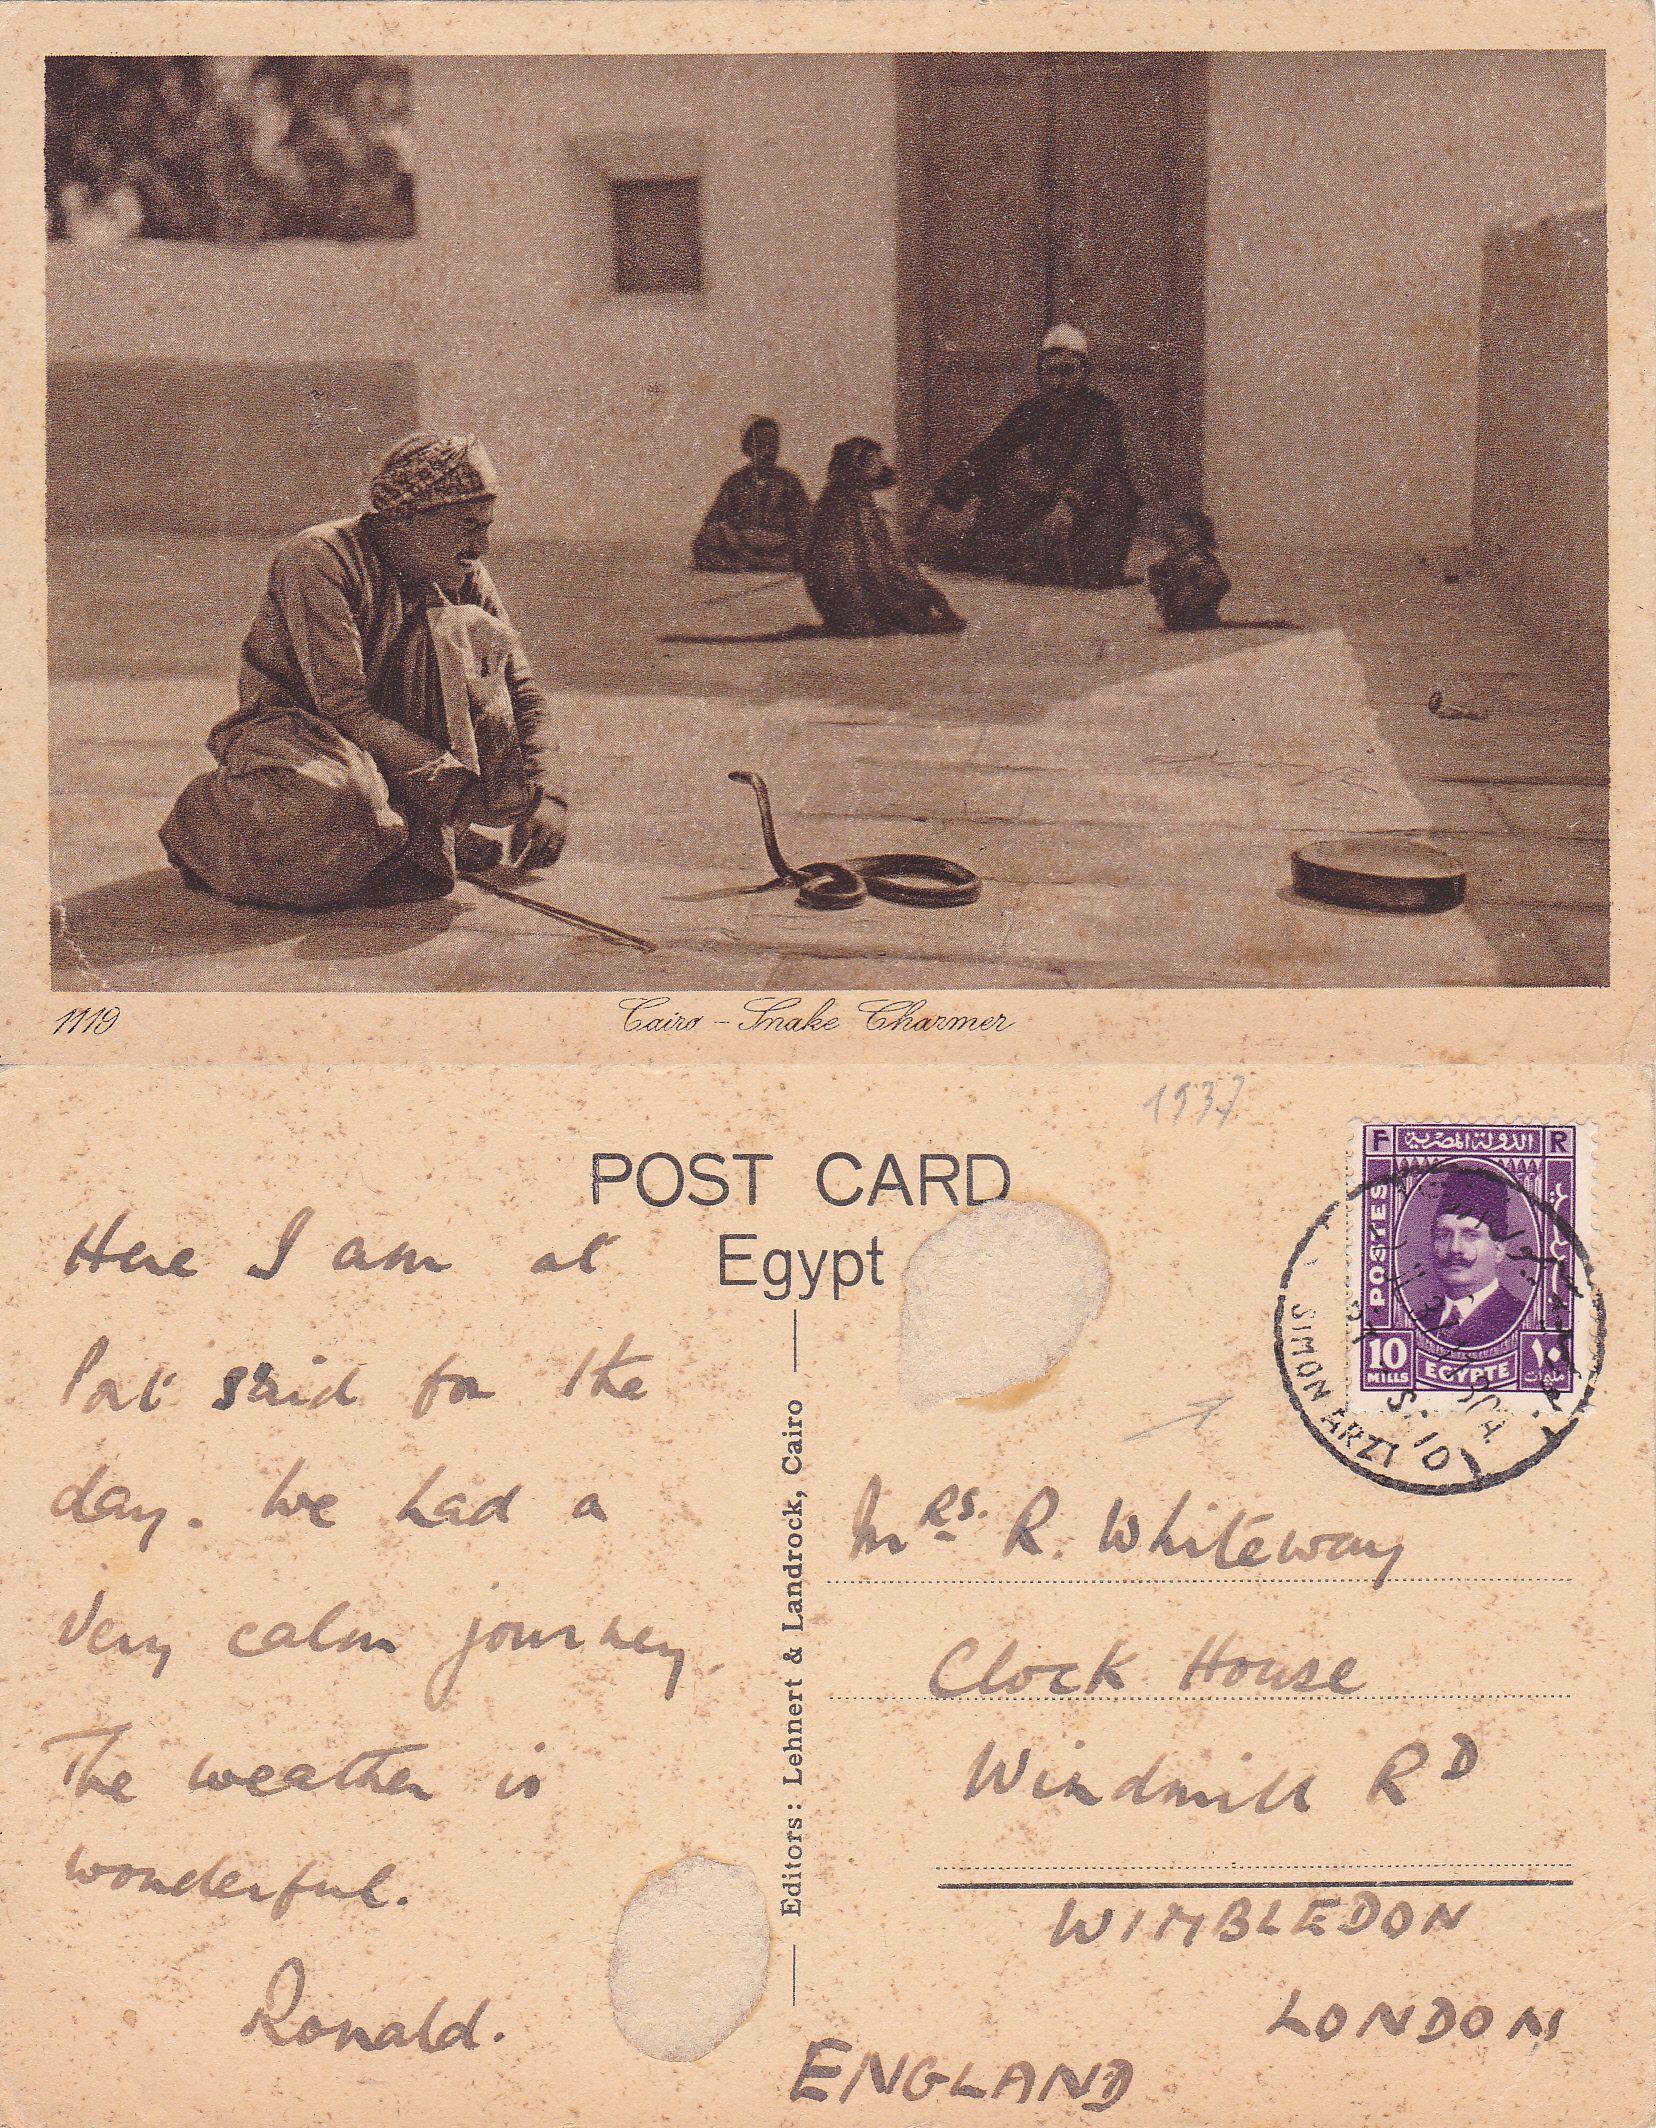 1119
Cairo - Snake Charmer
1937
POST CARD
Egypt
Here I am at
Port Said for the
day. We had a
very calm journey.
The weather is
wonderful.
Ronald.
Editors: Lehnert & Landrock, Cairo
F الدولة المصرية R
POSTES
10
MILLS
EGYPTE
١٠
مليمات
SIMON ARZT
S. 10
Mrs. R. Whiteway
Clock House
Windmill RD
WIMBLEDON
LONDON
ENGLAND